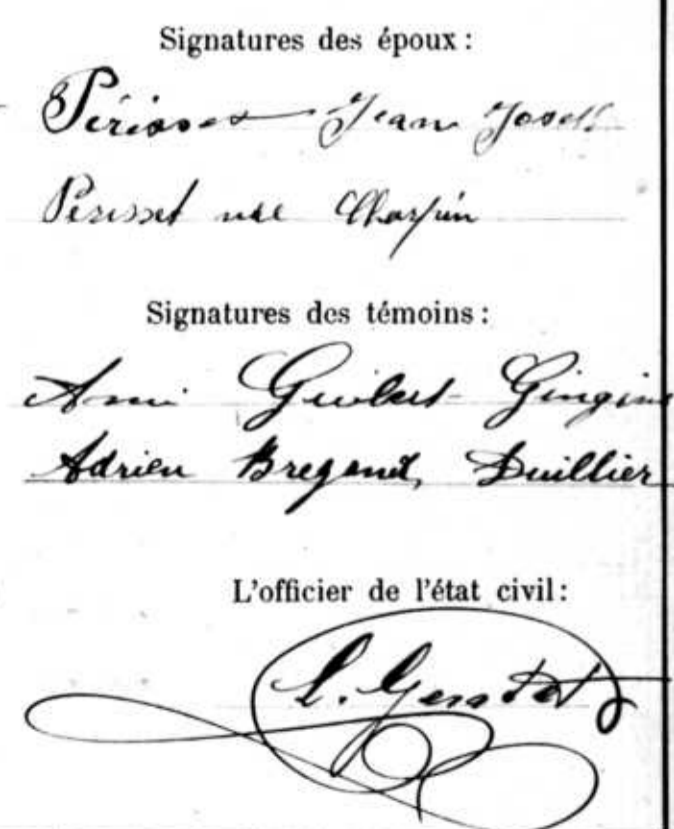 Signatures des époux :
Périsset Jean Joseph
Perisset née Charpin
Signatures des témoins :
Ami Guibert Gingins
Adrien Bregand, Duillier
L'officier de l'état civil :